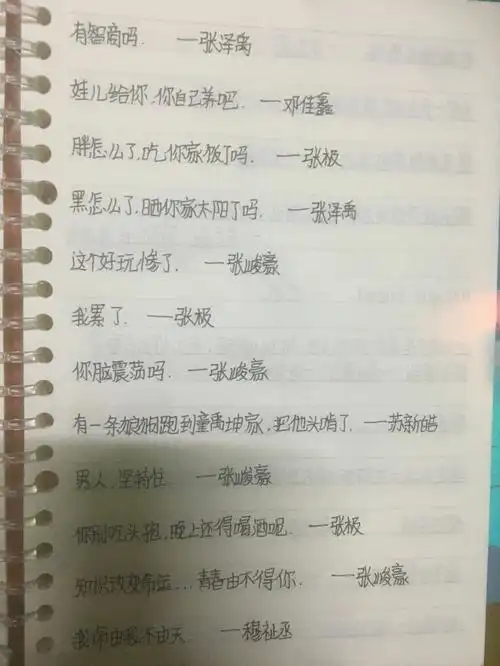 有智商吗. —张泽禹
娃儿给你,你自己养吧. —邓佳鑫
胖怎么了,吃你家饭了吗. —张极
黑怎么了,晒你家太阳了吗. —张泽禹
这个好玩惨了. —张峻豪
我累了. —张极
你脑震荡吗. —张峻豪
有一条狼狗跑到童禹坤家,把他头啃了. —苏新皓
男人,坚持住. —张峻豪
你别吃头孢,晚上还得喝酒呢. —张极
知识改变命运...青春由不得你. —张峻豪
我命由我不由天. —穆祉丞